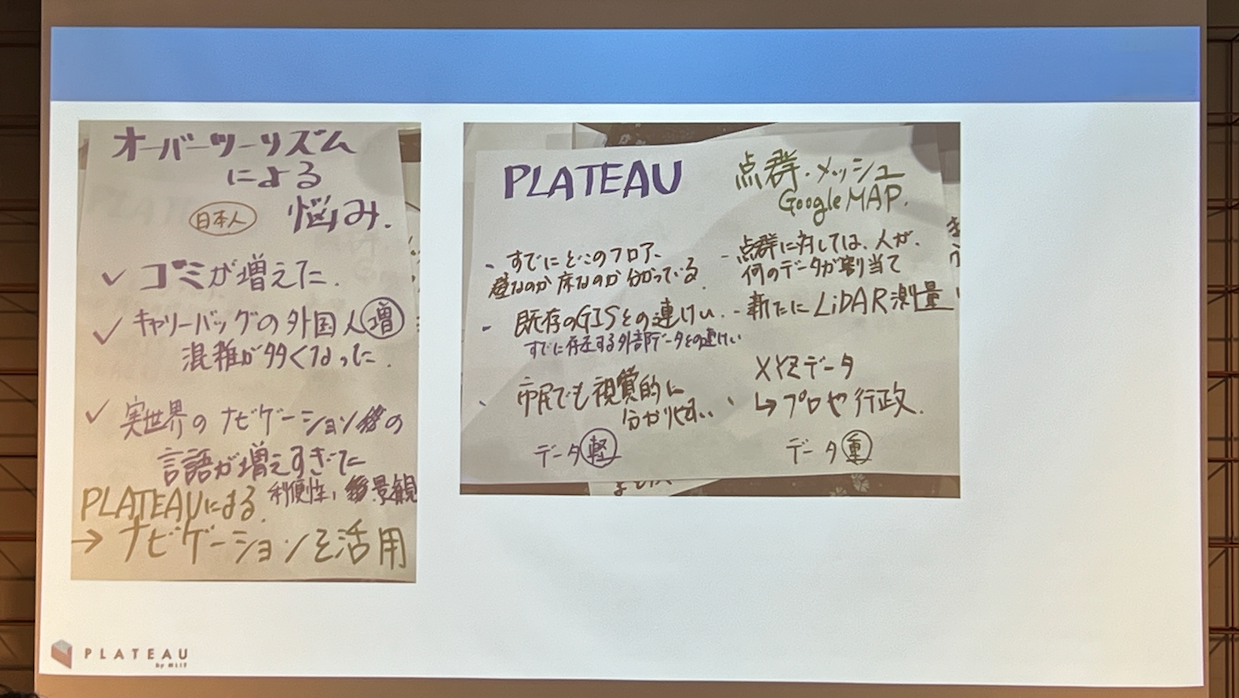 オーバーツーリズム
による
日本人 悩み.
✓ ゴミが増えた.
✓ キャリーバッグの外国人増
混雑が多くなった.
✓ 実世界のナビゲーションの
言語が増えすぎた
PLATEAUによる. 利便性, 景観
→ ナビゲーションを活用
PLATEAU
- すでにどこのフロア、
壁なのか床なのか分かっている.
- 既存のGISとの連けい.
すでに存在する外部データとの連けい
- 市民でも視覚的に
分かりやすい
データ軽
点群・メッシュ
Google MAP.
- 点群に対しては、人が、
何のデータか割り当て
- 新たにLiDAR測量
XYZデータ
↳ プロや行政.
データ重
PLATEAU
by MLIT